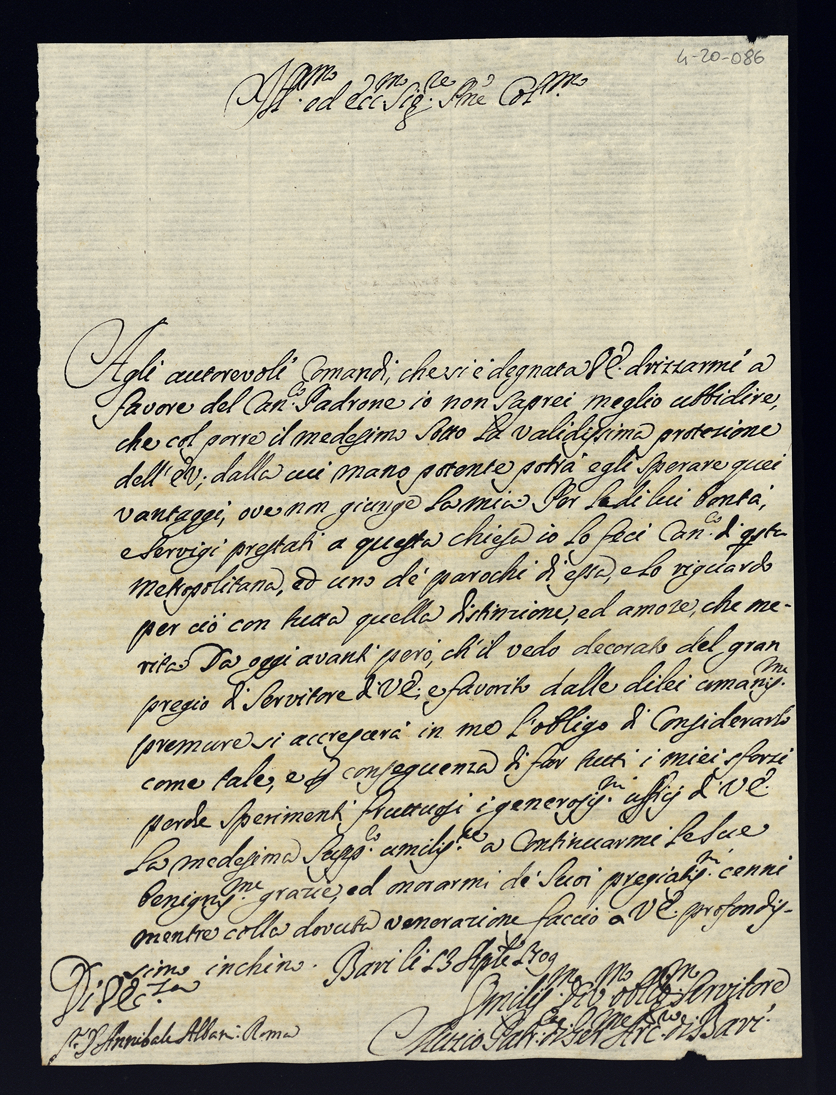 4-20-086
Ill.mo ed Ecc.mo Sig.re P.ne Col.mo
Agli autorevoli Comandi, che si è degnata V.E. drizzarmi a
favore del Can.co Padrone io non saprei meglio ubbidire,
che col porre il medesimo sotto la validissima protezione
dell'E.V., dalla cui mano potente potrà egli sperare quei
vantaggi, ove non giunge la mia. Per le di lui bontà,
e servigi prestati a questa chiesa io lo feci Can.co di qsta
Metropolitana, ed uno de' parochi di essa, e lo riguardo
per ciò con tutta quella distinzione, ed amore, che me-
rita. Da oggi avanti però, ch'il vedo decorato del gran
pregio di Servitore di V.E., e favorito dalle di lei umanis.me
premure si accrescerà in me l'obligo di Considerarlo
come tale, e conseguenza di far tutti i miei sforzi
perche sperimenti fruttuosi i generosis.mi ufficij di V.E.
La medesima supp.co umilis.te a Continuarmi le sue
benignis.me grazie, ed onorarmi de' suoi pregiatis.mi cenni
mentre colla dovuta venerazione faccio a V.E. profondis-
simo inchino. Bari li 23 Sptte 1709
Di V. Ecc.za
Umilis.mo Div.mo obblig.mo Servitore
S.r D. Annibale Albani: Roma
Muzio Arc. di Bari